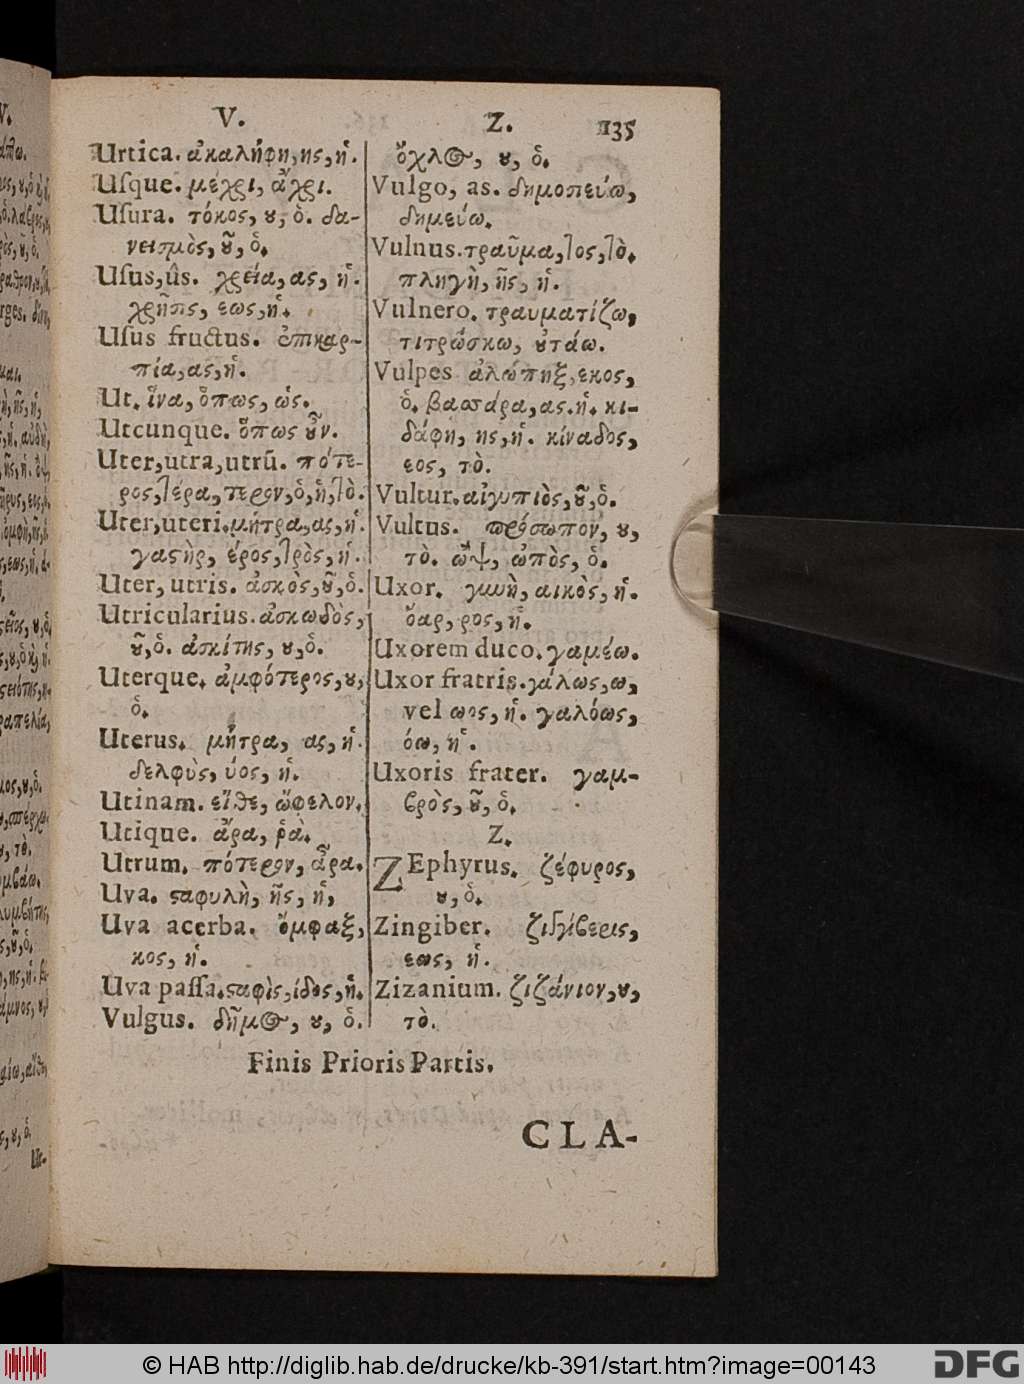 V.
Z.
135
Urtica. ἀκαλήφη, ης, ἡ.
Uſque. μέχρι, ἄχρι.
Uſura. τόκος, ȣ, ὁ. δα-
νεισμὸς, ȣ͂, ὁ.
Uſus, ûs. χρεία, ας, ἡ.
χρῆσις, εως, ἡ.
Uſus fructus. ἐπικαρ-
πία, ας, ἡ.
Ut. ἵνα, ὅπως, ὡς.
Utcunque. ὅπως ȣ̓͂ν.
Uter, utra, utrũ. πότε-
ρος, τέρα, τερον, ὁ, ἡ, τὸ.
Uter, uteri. μήτρα, ας, ἡ.
γαϛὴρ, έρος, τρὸς, ἡ.
Uter, utris. ἀσκὸς, ȣ͂, ὁ.
Utricularius. ἀσκωδὸς,
ȣ͂, ὁ. ἀσκίτης, ȣ, ὁ.
Uterque. ἀμφότερος, ȣ,
ὁ.
Uterus. μήτρα, ας, ἡ.
δελφὺς, ύος, ἡ.
Utinam. εἴθε, ὤφελον.
Utique. ἄρα, ῥὰ.
Utrum. πότερον, ἆρα.
Uva. ϛαφυλὴ, ῆς, ἡ,
Uva acerba. ὄμφαξ,
κος, ἡ.
Uva paſſa. ϛαφὶς, ίδος, ἡ.
Vulgus. δῆμος, ȣ, ὁ.
ὄχλος, ȣ, ὁ.
Vulgo, as. δημοπεύω,
δημεύω.
Vulnus. τραῦμα, τος, τὸ.
πληγὴ, ῆς, ἡ.
Vulnero. τραυματίζω,
τιτρώσκω, ȣ̓τάω.
Vulpes ἀλώπηξ, εκος,
ὁ. βασσάρα, ας. ἡ. κι-
δάφη, ης, ἡ. κίναδος,
εος, τὸ.
Vultur. αἰγυπιὸς, ȣ͂, ὁ.
Vultus. πρόσωπον, ȣ,
τὸ. ὢψ, ὠπὸς, ὁ.
Uxor. γυνὴ, αικὸς, ἡ.
ὄαρ, ρος, ἡ.
Uxorem duco. γαμέω.
Uxor fratris. γάλως, ω,
vel ωος, ἡ. γαλόως,
όω, ἡ.
Uxoris frater. γαμ-
βρὸς, ȣ͂, ὁ.
Z.
ZEphyrus. ζέφυρος,
ȣ, ὁ.
Zingiber. ζιγγίβερις,
εως, ἡ.
Zizanium. ζιζάνιον, ȣ,
τὸ.
Finis Prioris Partis.
CLA-
© HAB http://diglib.hab.de/drucke/kb-391/start.htm?image=00143
DFG